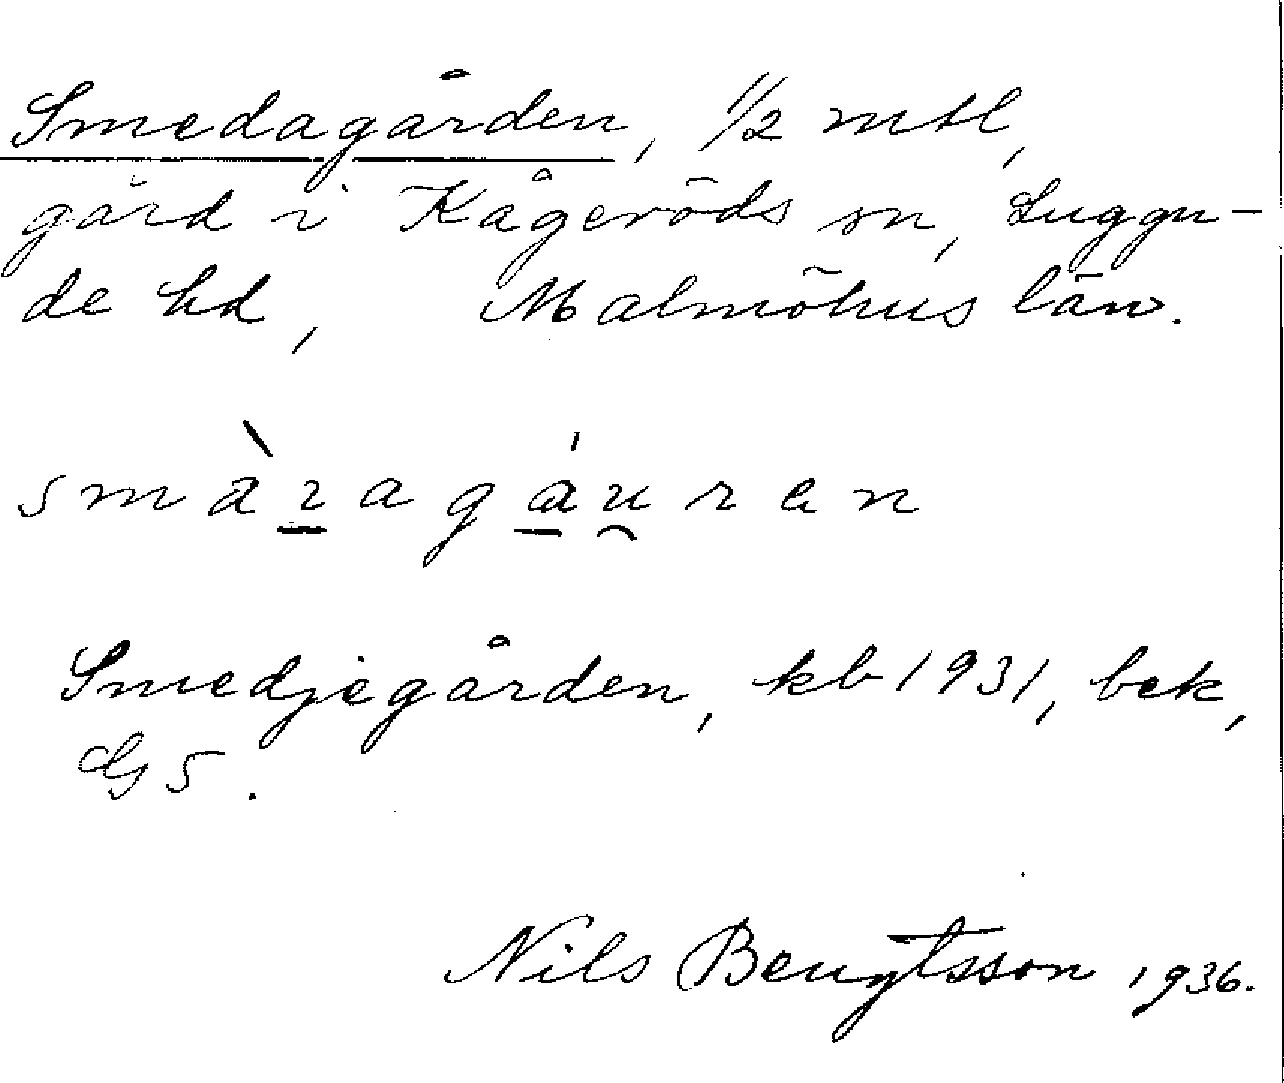 Smedagården, 1/2 mtl,
gård i Kågeröds sn, Luggu-
de hd, Malmöhus län.
Smedjegården, kb 1931, bek,
G5.
Nils Bengtsson 1936.